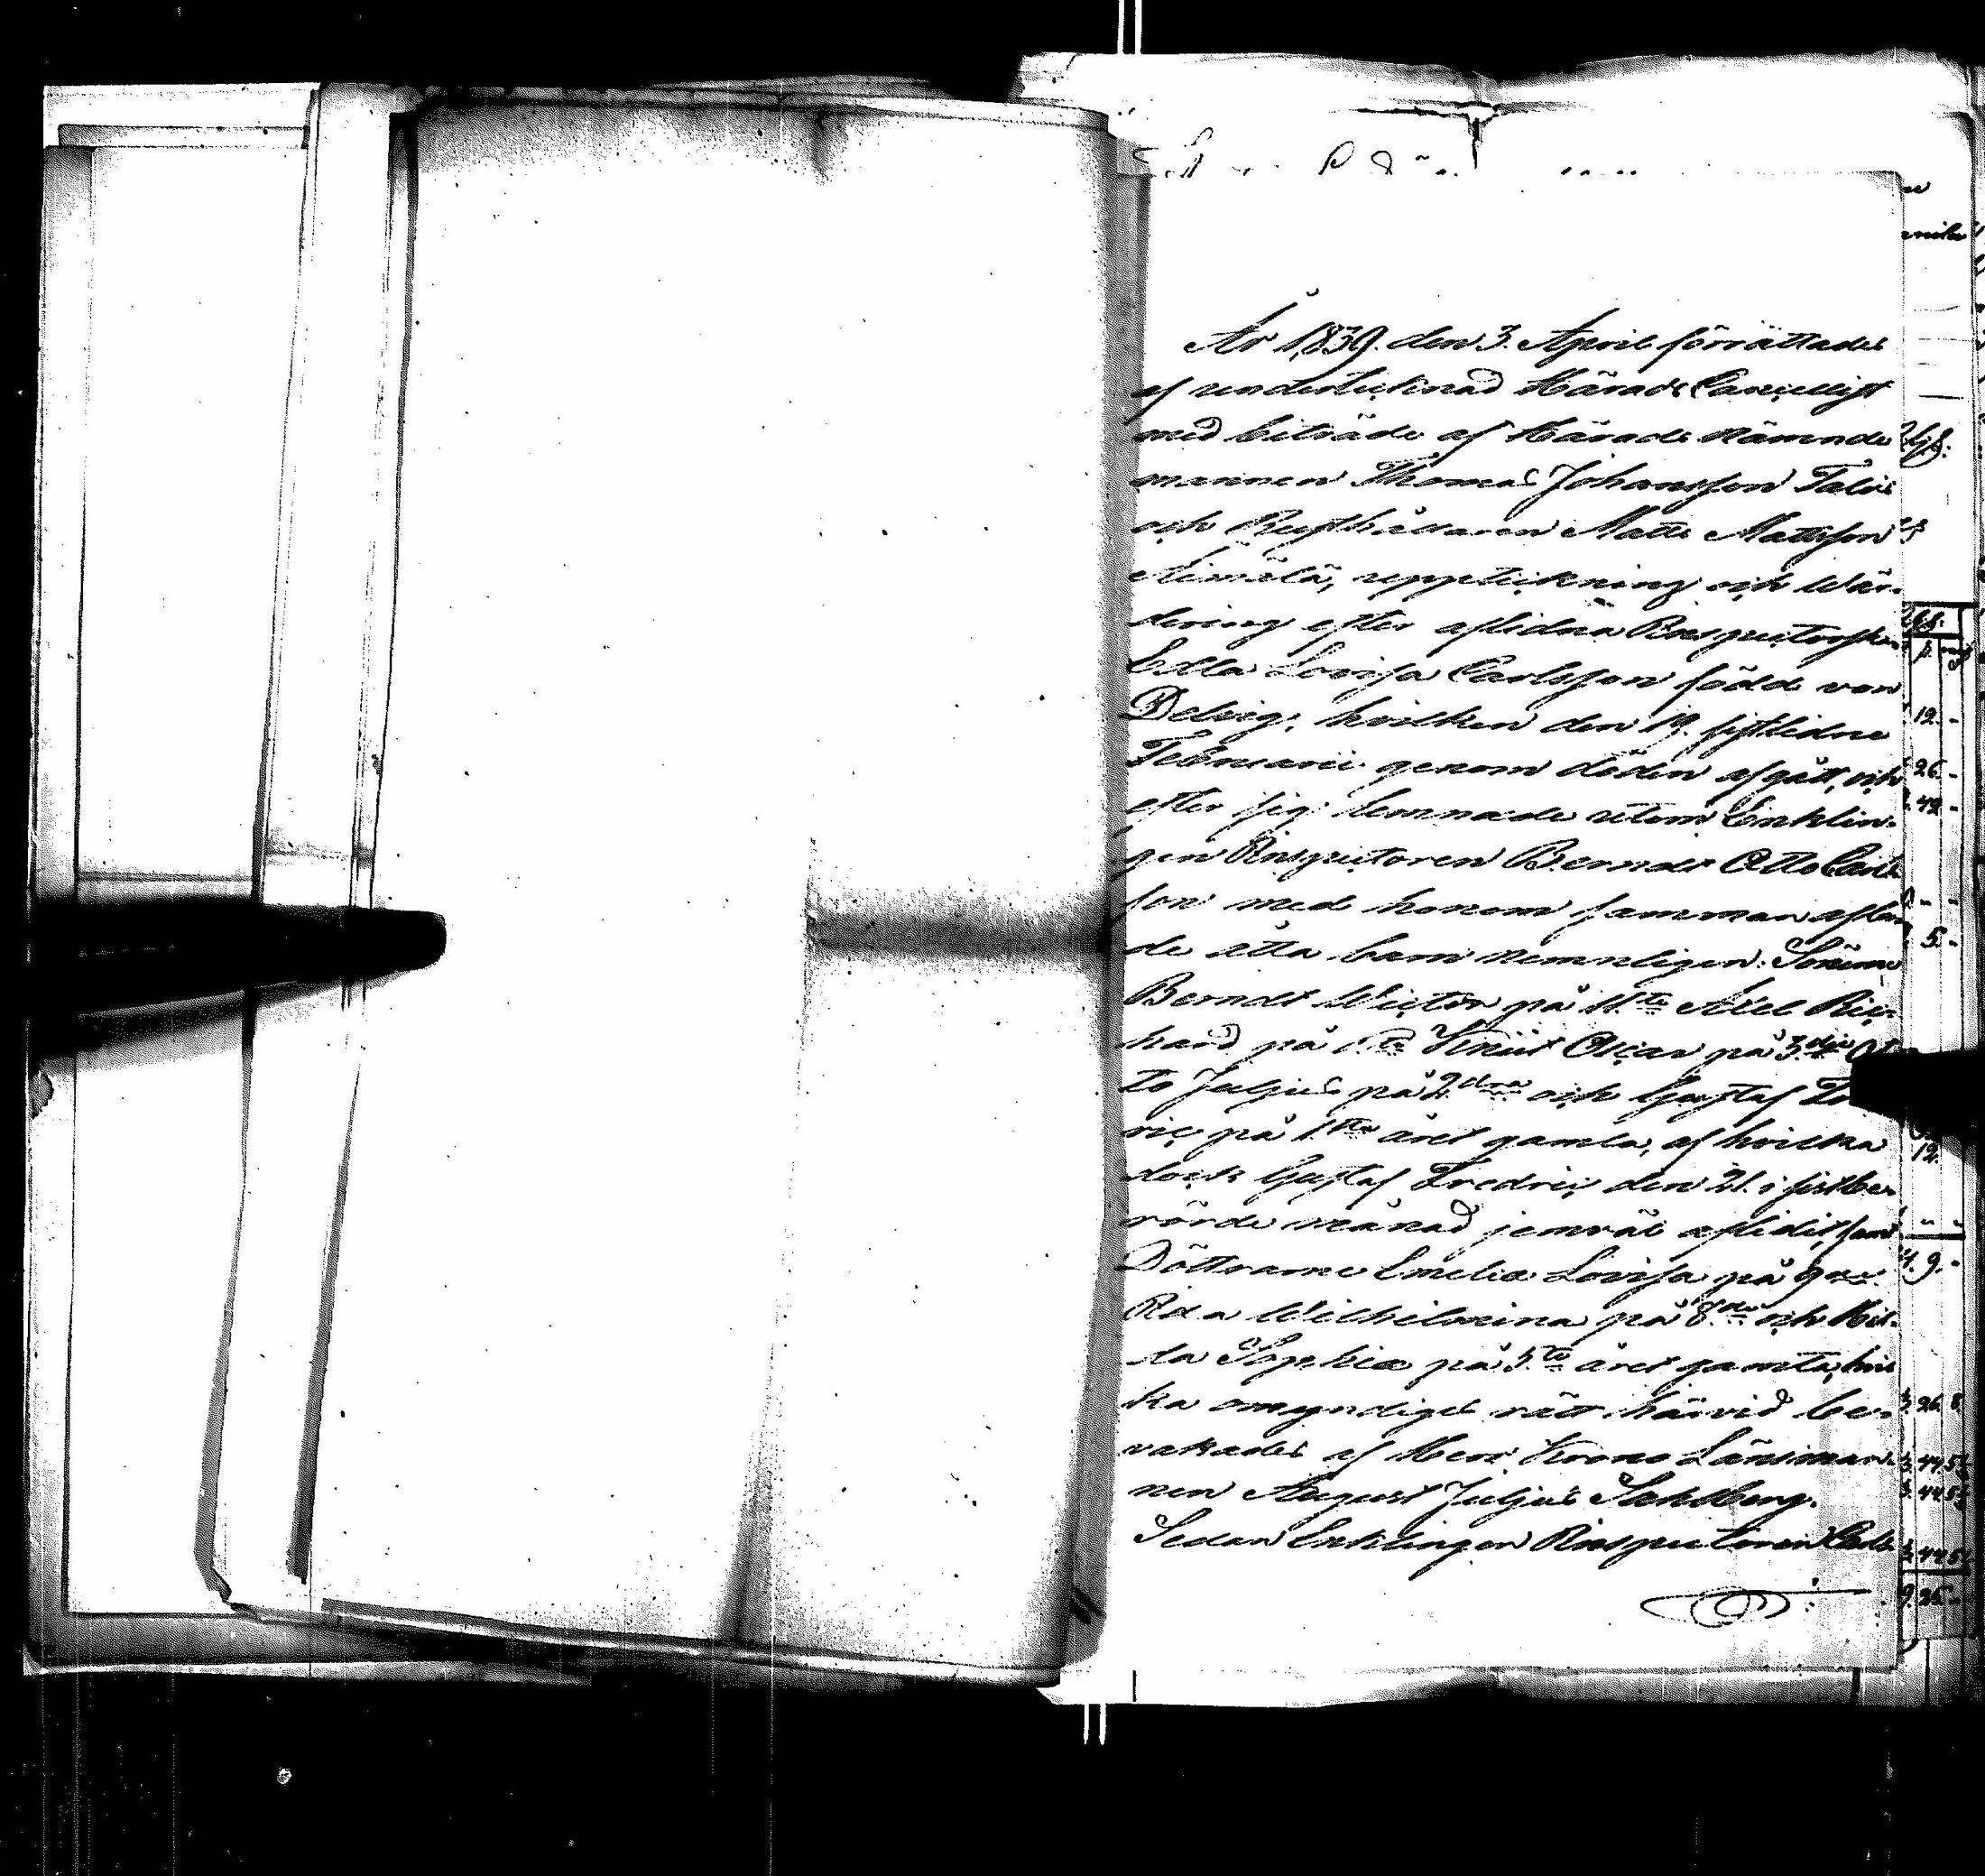 År 1839. den 3. April förrättades
af undertecknad Härads Cancellist
med biträde af Härads nämnde
mannen Thomas Johansson Talus
och Rusthållaren Matts Mattsson
Aimälä, uppteckning och wär-
dering efter aflidna Inspectorskan
Edla Lovisa Carlsson född von
Delvig, hvilken den 19. sistlidne
Februarii genom döden afgått, och
efter sig lemnade utom Enklin-
gen Inspectoren Berndt Otto Carls
son med honom samman aflan
de åtta barn nemneligen: Sönerne
Berndt Victor på 11.te Axel Ric-
hard på Knut Oscar på 3.dje Ot
to Julius på 2.dra och Gustaf Fr
ric på 1.sta året gamla, af hvilka
dock Gustaf Fredric den 21. i sistbe-
rörde månad jemväl aflidit, samt
Döttrarne Emelia Lovisa på 9.de
Ida Wilhelmina på 8.de och Hil-
da Sophia på 5.te året gamla, hvil
ka omyndiges rätt härvid be-
vakades af Herr Krono Länsman-
nen August Julius Sahlberg.
Sedan Enklingen Inspectoren Carls